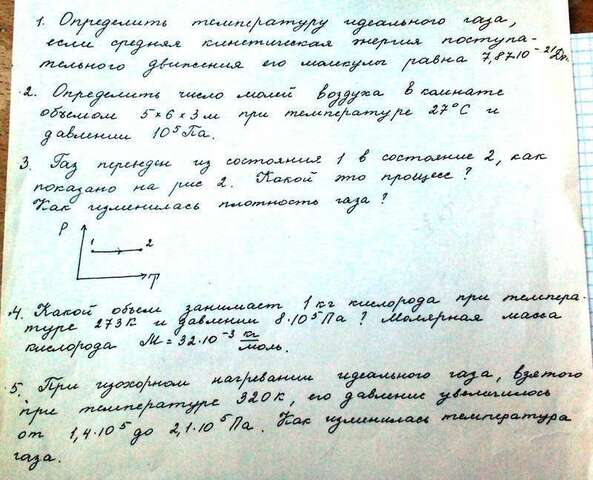 1. Определить температуру идеального газа,
если средняя кинетическая энергия поступа-
тельного движения его молекулы равна 7,87·10⁻²¹Дж.
2. Определить число молей воздуха в комнате
объемом 5×6×3м при температуре 27°С и
давлении 10⁵Па.
3. Газ переведен из состояния 1 в состояние 2, как
показано на рис 2. Какой это процесс?
Как изменилась плотность газа?
P
1 2
T
4. Какой объем занимает 1 кг кислорода при темпера-
туре 273К и давлении 8·10⁵Па? Молярная масса
кислорода М=32·10⁻³ кг/моль.
5. При изохорном нагревании идеального газа, взятого
при температуре 320К, его давление увеличилось
от 1,4·10⁵ до 2,1·10⁵Па. Как изменилась температура
газа.